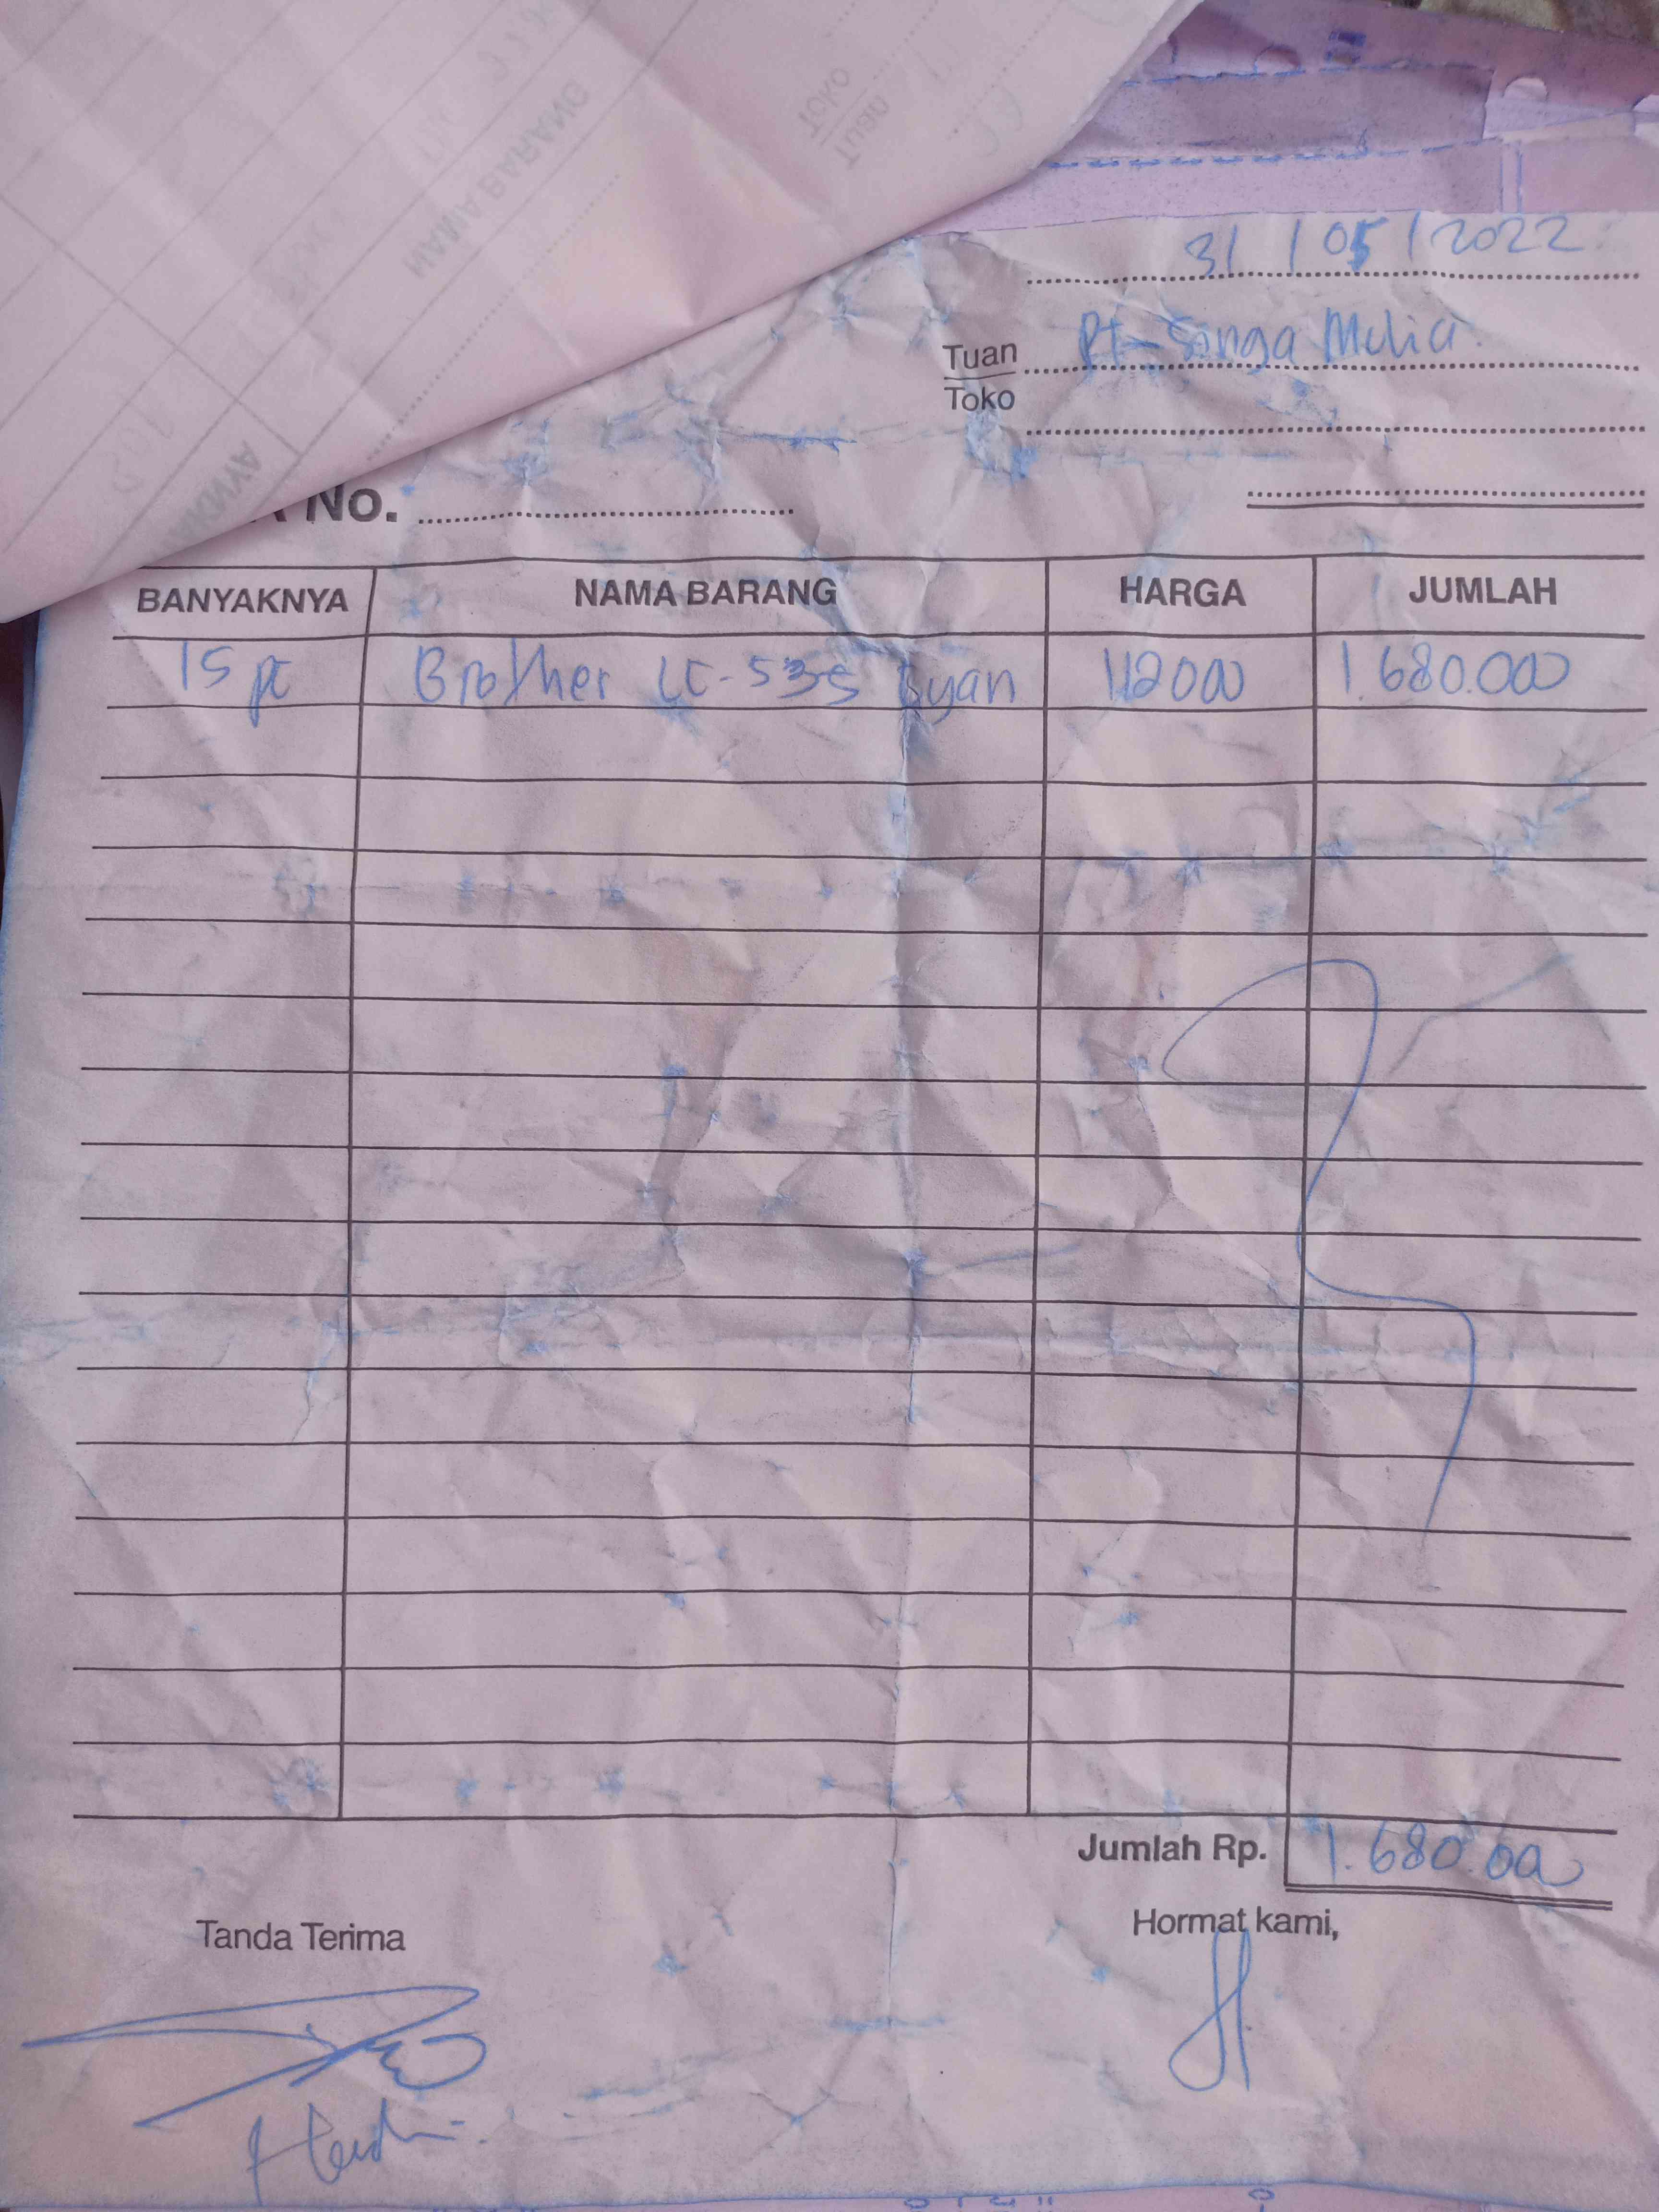 NAMA BARANG
Tuan
Toko
31 / 05 / 2022
Tuan Pt- Singa Mulia
Toko
No.
BANYAKNYA NAMA BARANG HARGA JUMLAH
15 pc Brother LC-535 Cyan 112000 1.680.000
Jumlah Rp. 1.680.00
Tanda Terima Hormat kami,